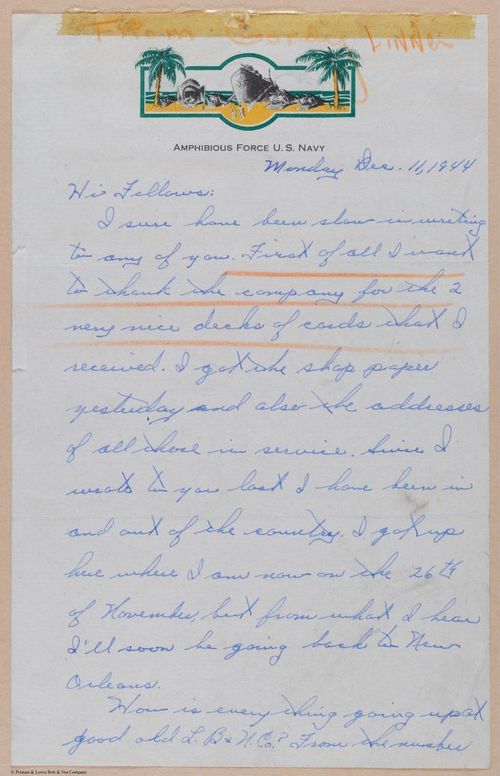 From George Linner
AMPHIBIOUS FORCE U. S. NAVY
Monday Dec. 11, 1944
Hi Fellows:
I sure have been slow in writing
to any of you. First of all I want
to thank the company for the 2
very nice decks of cards that I
received. I got the shop paper
yesterday and also the addresses
of all those in service. Since I
wrote to you last I have been in
and out of the country. I got up
here where I am now on the 26th
of November, but from what I hear
I'll soon be going back to New
Orleans.
How is every thing going up at
good old L. B. & N. Co.? From the number
© Pioneer & Lewis Bolt & Nut Company